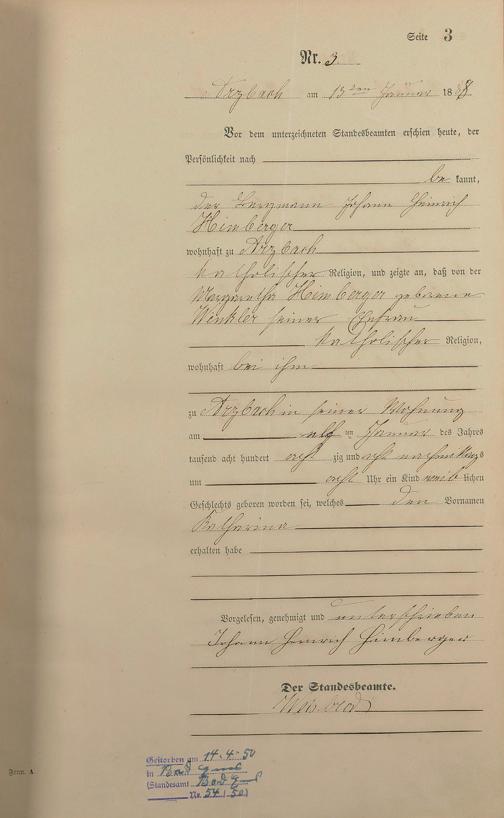 Seite 3
Nr. 3.
Arzbach am 13ten Januar 1888
Vor dem unterzeichneten Standesbeamten erschien heute, der
Persönlichkeit nach
be kannt,
der Bergmann Johann Heinrich
Himberger
wohnhaft zu Arzbach
katholischer Religion, und zeigte an, daß von der
Margaretha Himberger geborene
Winkler seiner Ehefrau
katholischer Religion,
wohnhaft bei ihm
zu Arzbach in seiner Wohnung
am elften Januar des Jahres
tausend acht hundert acht zig und acht nachmittags
um acht Uhr ein Kind weib lichen
Geschlechts geboren worden sei, welches den Vornamen
Katharina
erhalten habe
Vorgelesen, genehmigt und unterschrieben
Johann Heinrich Himberger
Der Standesbeamte.
Gestorben am 14.4.50
in Bad Ems
(Standesamt Bad Ems
Nr. 54 (50)
Form. A